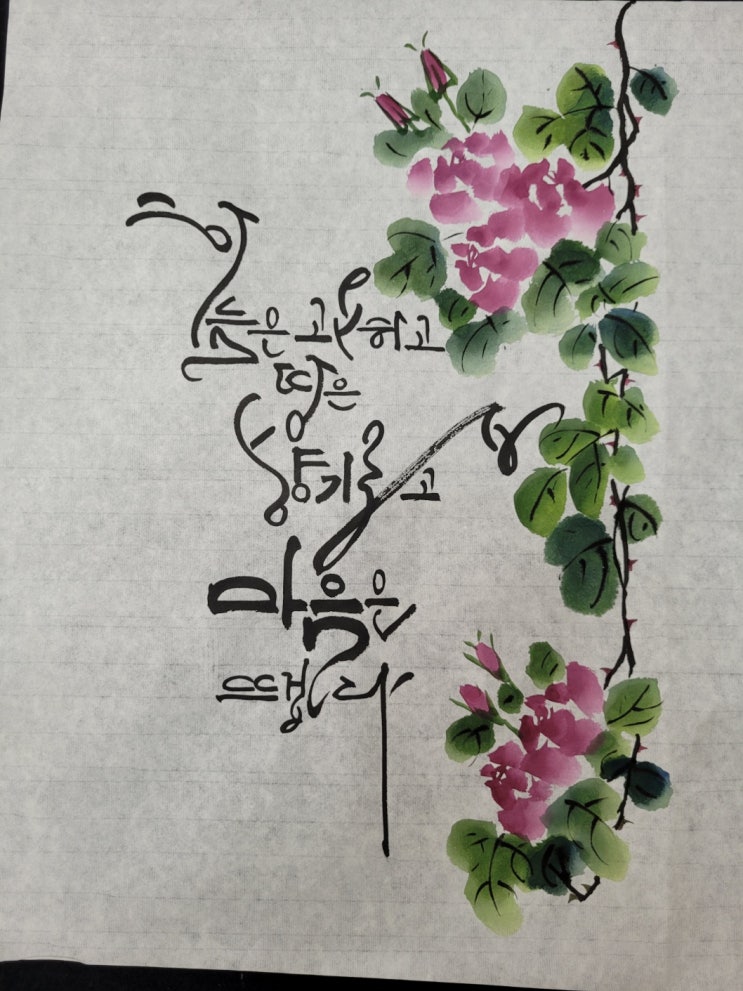 하늘은 고요하고
땅은
향기롭고
마음은
뜨겁다